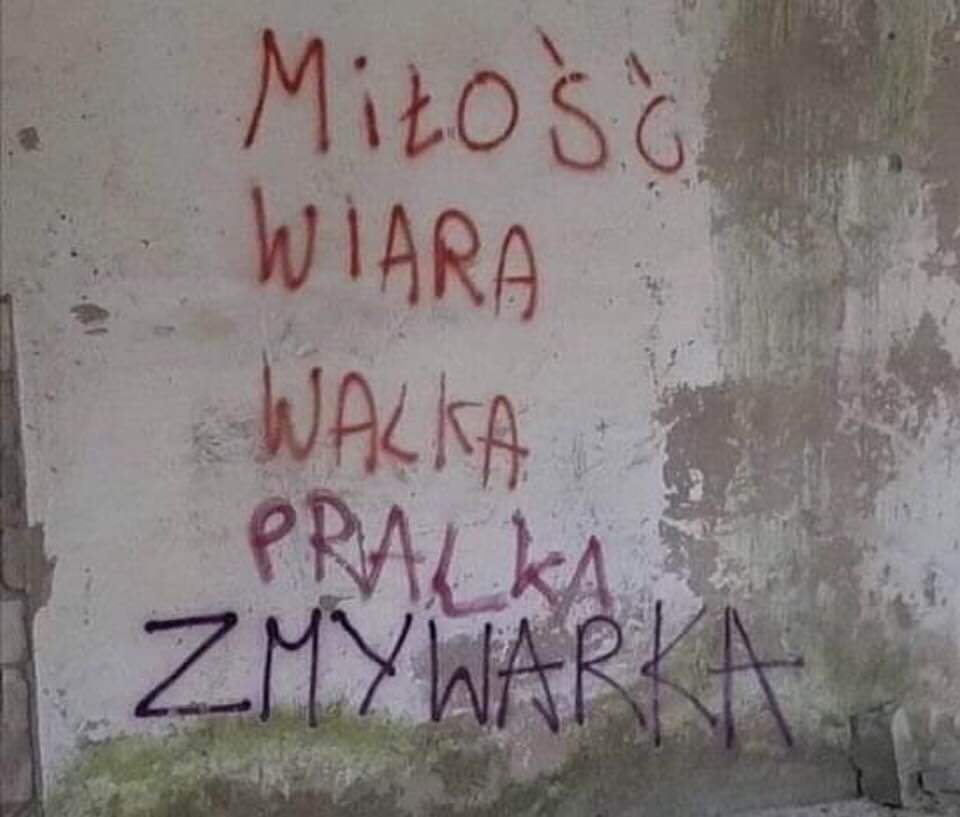 MiŁOŚĆ
WIARA
WALKA
PRALKA
ZMYWARKA